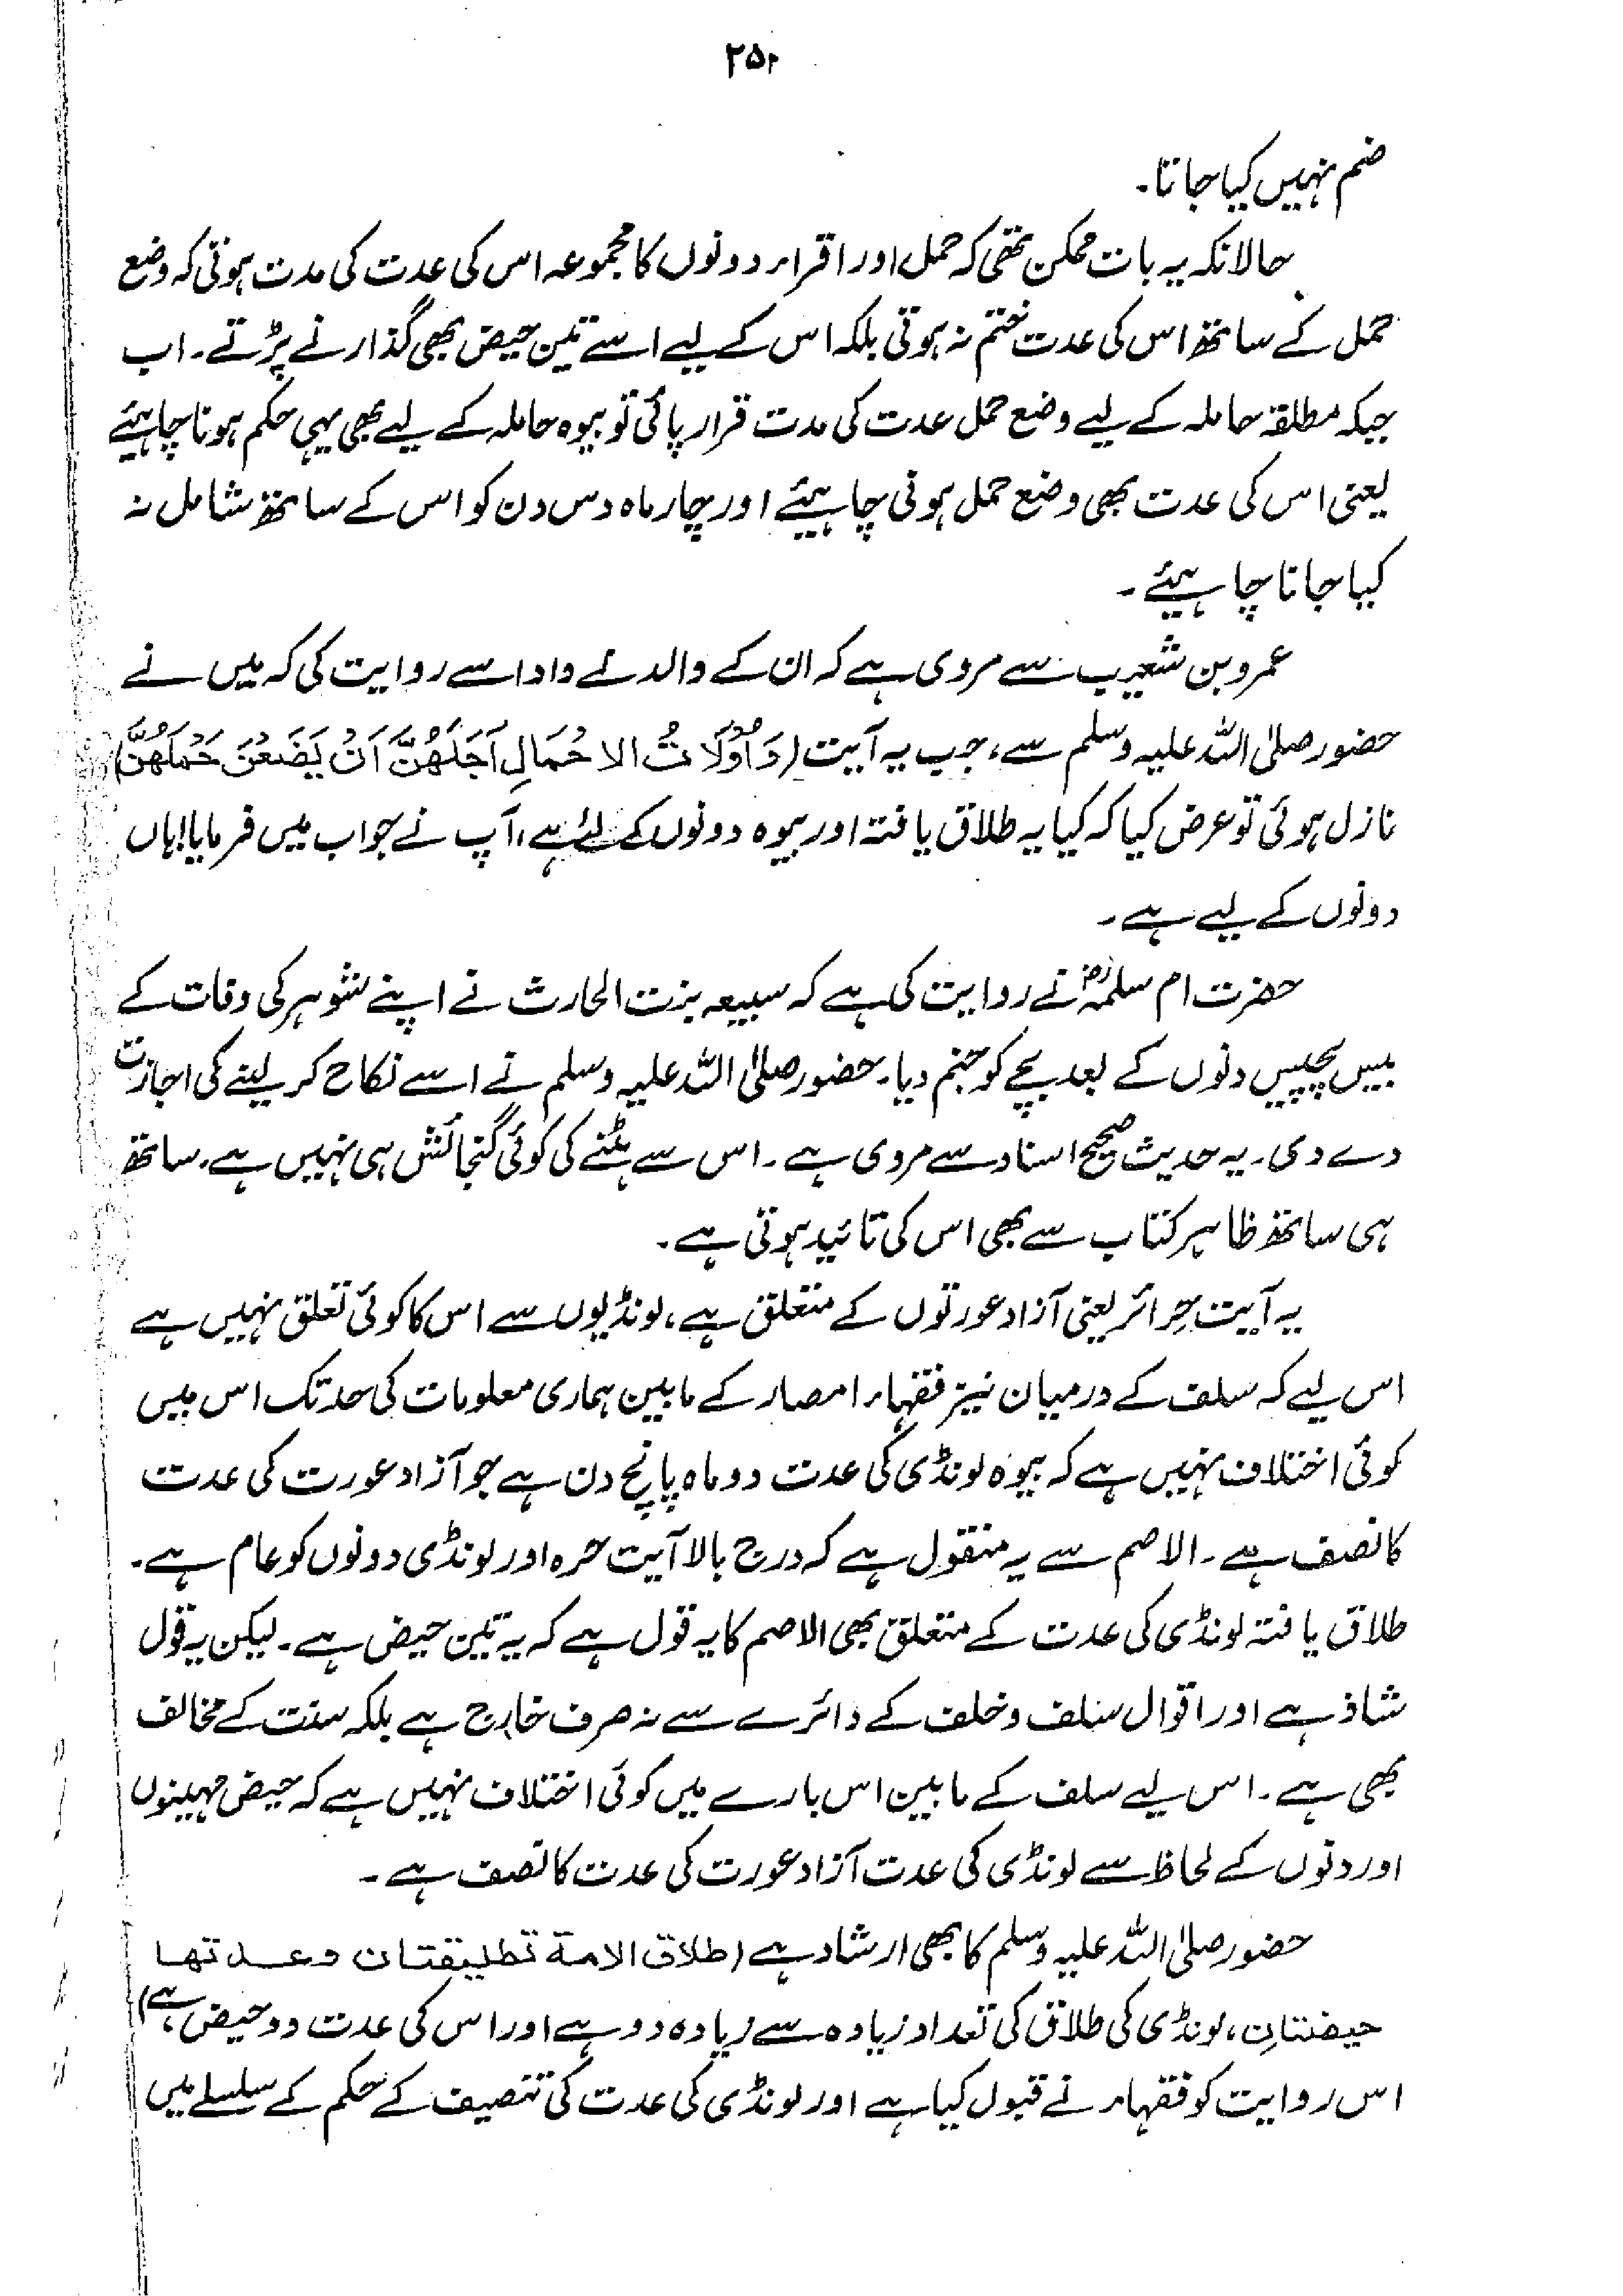 ۲۵۱
ضم نہیں کیا جاتا۔
حالانکہ یہ بات ممکن تھی کہ حمل اور اقراء دونوں کا مجموعہ اس کی عدت کی مدت ہوتی کہ وضع
حمل کے ساتھ اس کی عدت ختم نہ ہوتی بلکہ اس کے لیے اسے تین حیض بھی گذارنے پڑتے۔ اب
جبکہ مطلقہ حاملہ کے لیے وضع حمل عدت کی مدت قرار پائی تو بیوہ حاملہ کے لیے بھی یہی حکم ہونا چاہیئے
یعنی اس کی عدت بھی وضع حمل ہونی چاہیئے اور چار ماہ دس دن کو اس کے ساتھ شامل نہ
کیا جانا چاہیئے۔
عمرو بن شعیب سے مروی ہے کہ ان کے والد نے دادا سے روایت کی کہ میں نے
حضور صلی اللہ علیہ وسلم سے، جب یہ آیت (وَاُولَاتُ الاحْمَالِ اَجَلُهُنَّ اَنْ يَضَعْنَ حَمْلَهُنَّ)
نازل ہوئی تو عرض کیا کہ کیا یہ طلاق یافتہ اور بیوہ دونوں کے لئے ہے، آپ نے جواب میں فرمایا! ہاں
دونوں کے لیے ہے۔
حضرت ام سلمہؓ نے روایت کی ہے کہ سبیعہ بنت الحارث نے اپنے شوہر کی وفات کے
بیس پچیس دنوں کے بعد بچے کو جنم دیا۔ حضور صلی اللہ علیہ وسلم نے اسے نکاح کر لینے کی اجازت
دے دی۔ یہ حدیث صحیح اسناد سے مروی ہے۔ اس سے ہٹنے کی کوئی گنجائش ہی نہیں ہے۔ ساتھ
ہی ساتھ ظاہر کتاب سے بھی اس کی تائید ہوتی ہے۔
یہ آیت حرائر یعنی آزاد عورتوں کے متعلق ہے، لونڈیوں سے اس کا کوئی تعلق نہیں ہے
اس لیے کہ سلف کے درمیان نیز فقہاء امصار کے مابین ہماری معلومات کی حد تک اس میں
کوئی اختلاف نہیں ہے کہ بیوہ لونڈی کی عدت دو ماہ پانچ دن ہے جو آزاد عورت کی عدت
کا نصف ہے۔ الاصم سے یہ منقول ہے کہ درج بالا آیت حرہ اور لونڈی دونوں کو عام ہے۔
طلاق یافتہ لونڈی کی عدت کے متعلق بھی الاصم کا یہ قول ہے کہ یہ تین حیض ہے۔ لیکن یہ قول
شاذ ہے اور اقوال سلف و خلف کے دائرے سے نہ صرف خارج ہے بلکہ سنت کے مخالف
بھی ہے۔ اس لیے سلف کے مابین اس بارے میں کوئی اختلاف نہیں ہے کہ حیض مہینوں
اور دنوں کے لحاظ سے لونڈی کی عدت آزاد عورت کی عدت کا نصف ہے۔
حضور صلی اللہ علیہ وسلم کا بھی ارشاد ہے (طلاق الامة تطليقتان وعدتها
حیضتانِ، لونڈی کی طلاق کی تعداد زیادہ سے زیادہ دو ہے اور اس کی عدت دو حیض ہے)
اس روایت کو فقہاء نے قبول کیا ہے اور لونڈی کی عدت کی تنصیف کے حکم کے سلسلے میں